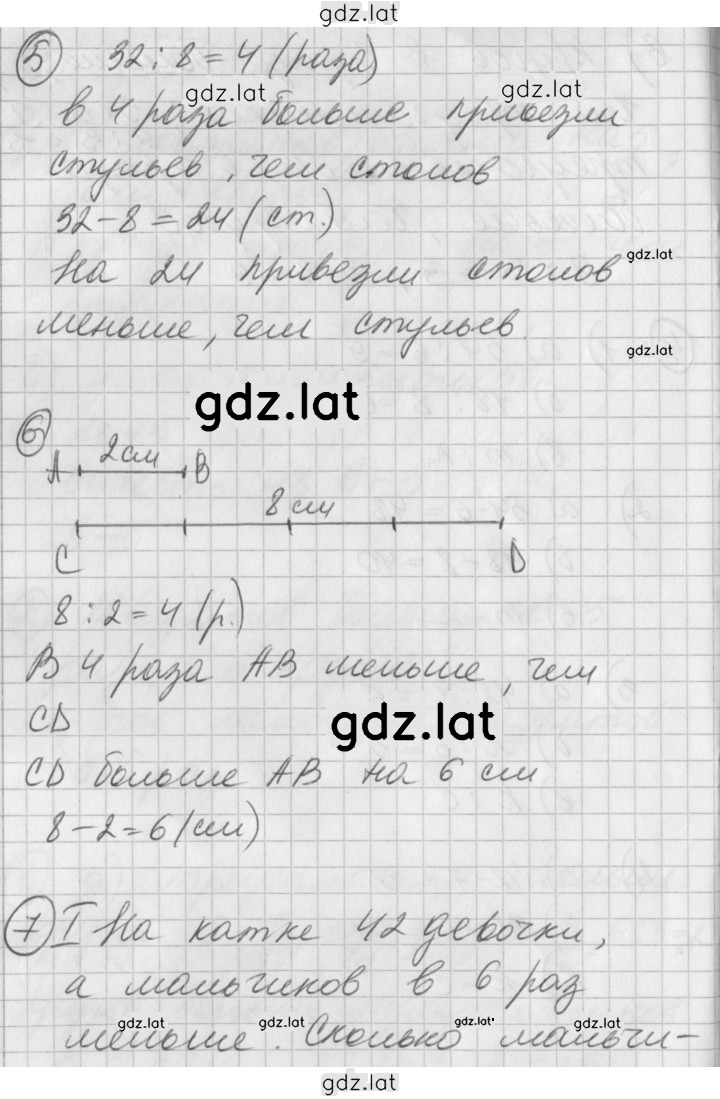 gdz.lat
5 32 : 8 = 4 (раза)
gdz.lat
gdz.lat
в 4 раза больше привезли
стульев, чем столов
32 - 8 = 24 (ст.)
gdz.lat
На 24 привезли столов
меньше, чем стульев.
gdz.lat
gdz.lat
6
A 2 см B
8 см
C D
8 : 2 = 4 (р.)
В 4 раза AB меньше, чем
CD
gdz.lat
CD больше AB на 6 см
8 - 2 = 6 (см)
7 I На катке 42 девочки,
а мальчиков в 6 раз
gdz.lat gdz.lat gdz.lat gdz.lat
меньше. Сколько мальчи-
gdz.lat